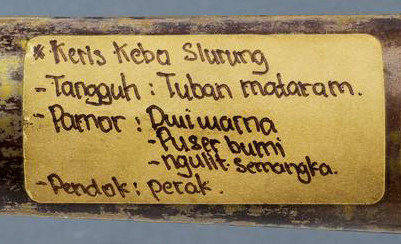 * Keris Kebo Slurung
- Tangguh : Tuban mataram.
- Pamor : Dwi warna
- Puser bumi
- ngulit semangka.
- Pendok : perak.